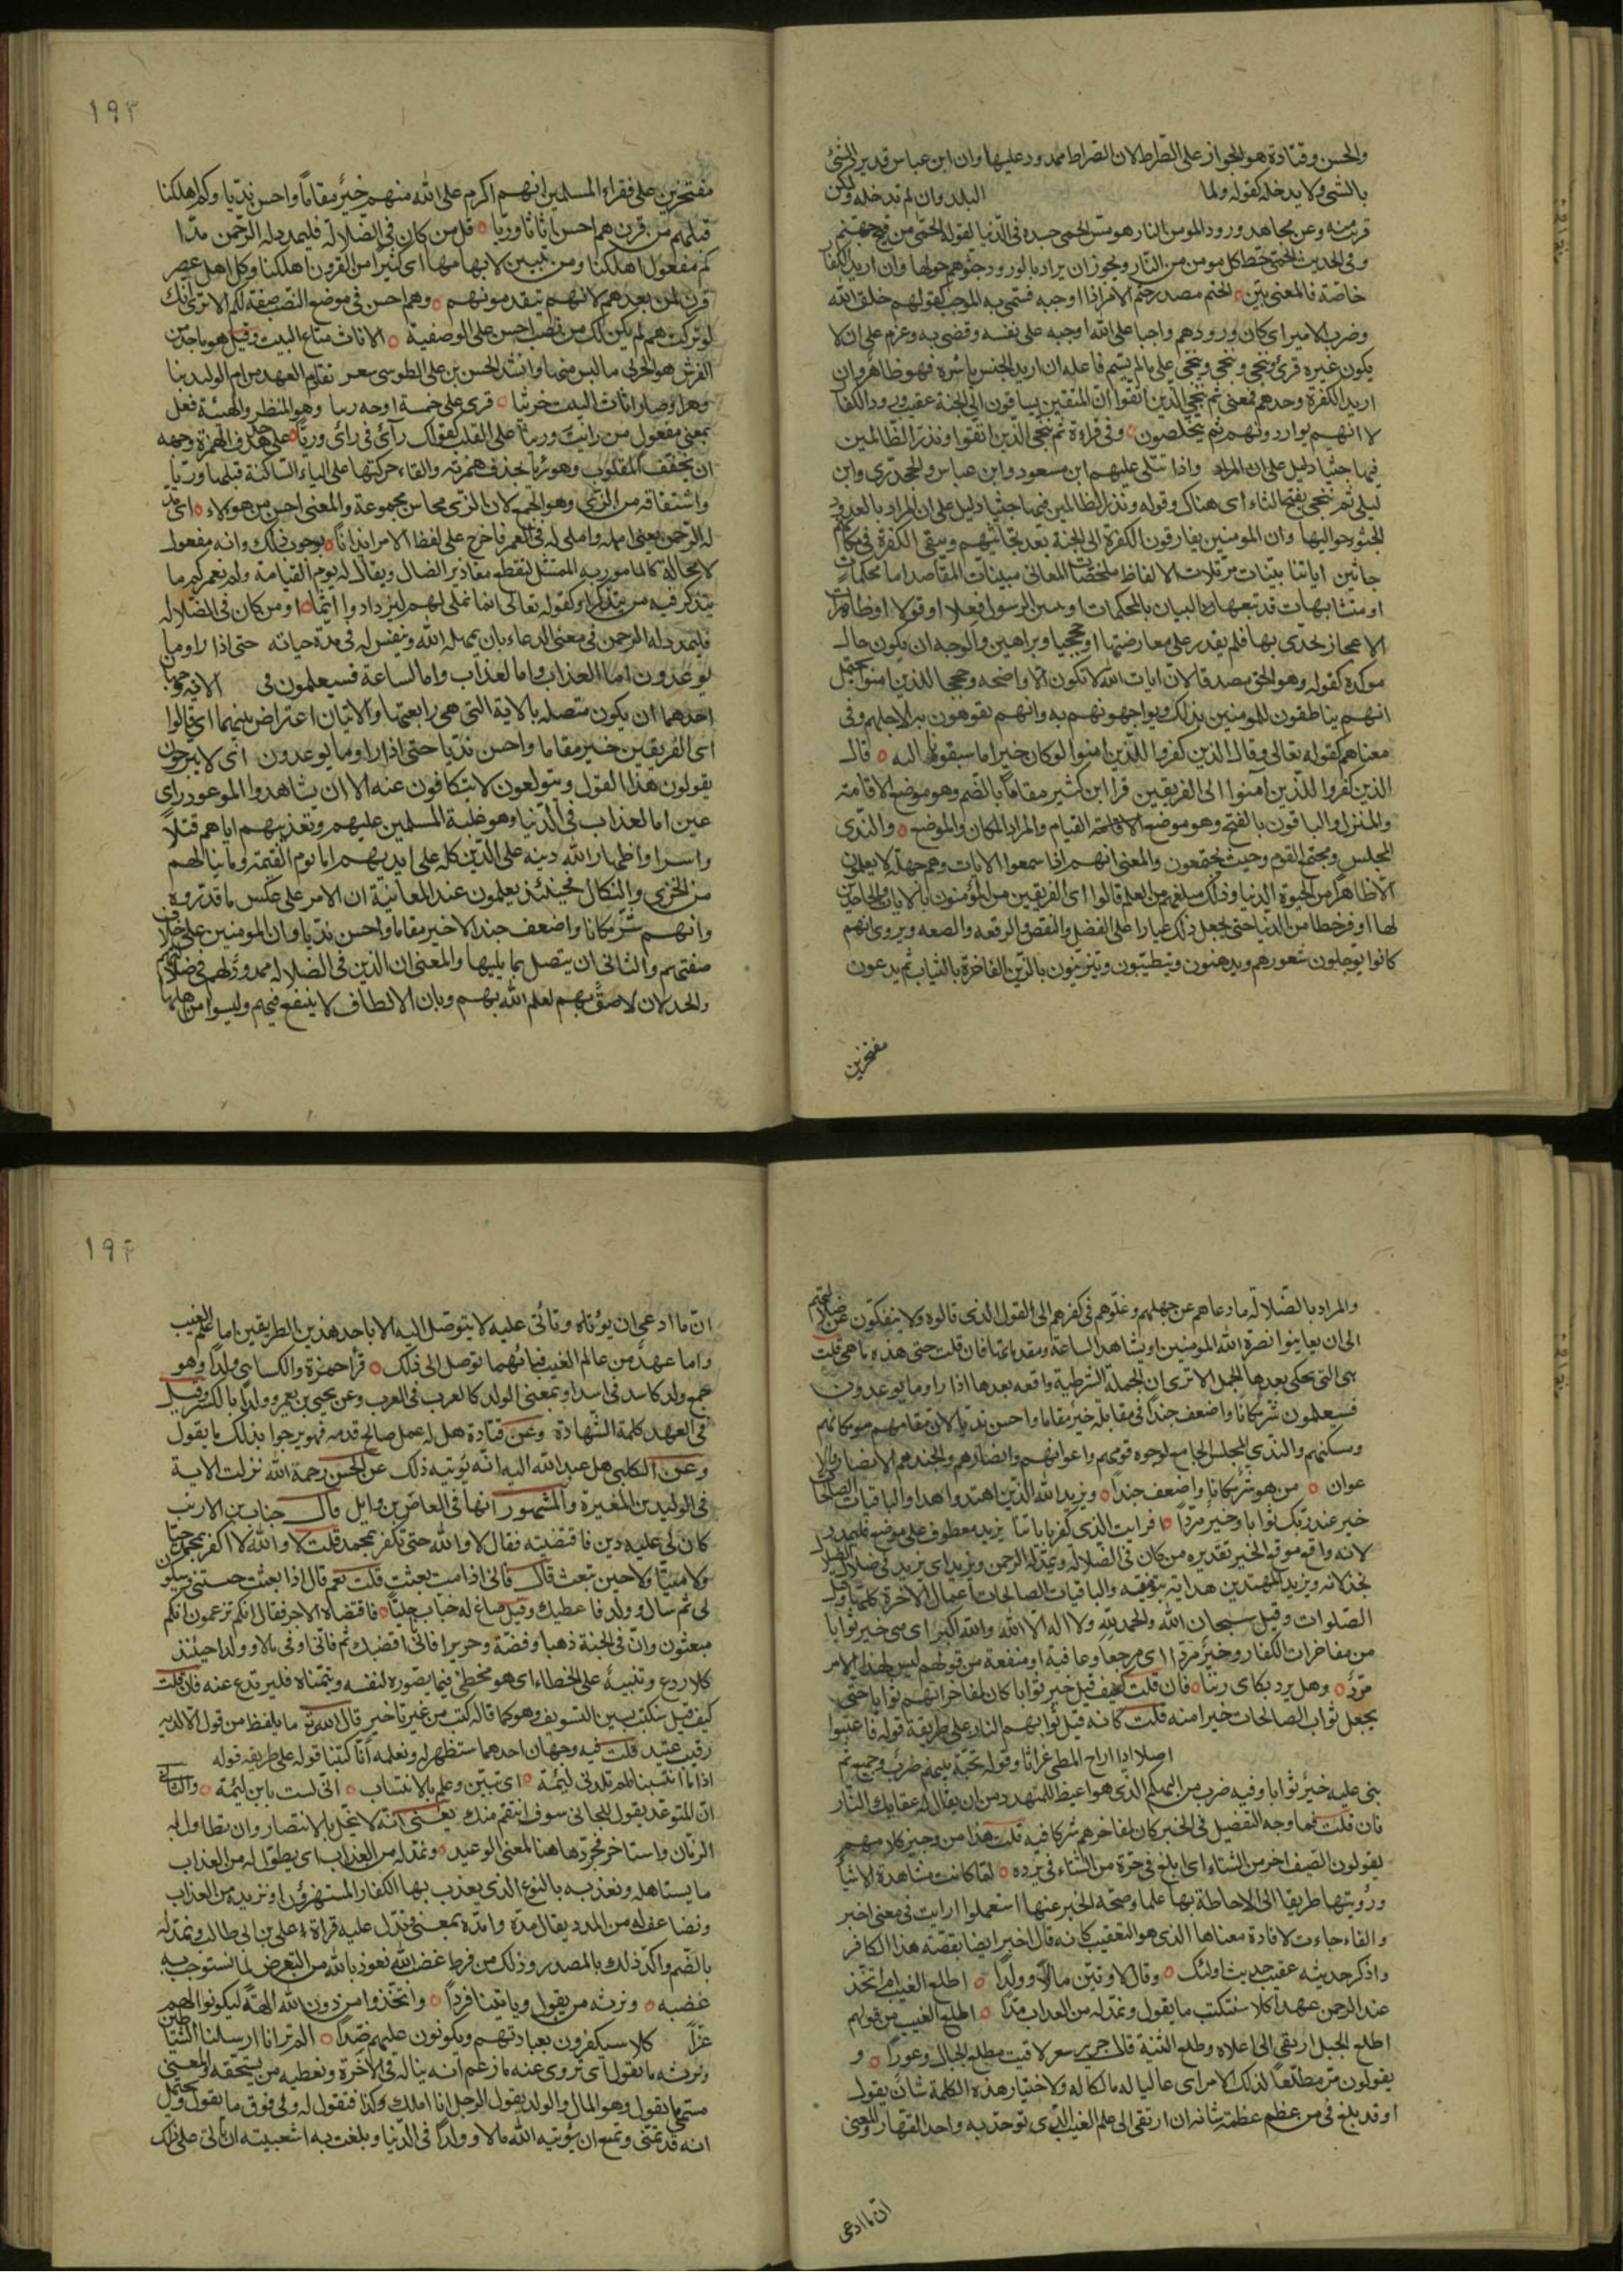 والحسن وقتادة هو الجواز على الصراط لان الصراط ممدود عليها وان ابن عباس قد يرد الشئ
بالشئ ولا يدخله كقوله ولما البلد وان لم تدخله ولكن
قربت منه وعن مجاهد ورود المومن النار هو مس الحمى جسده فى الدنيا لقوله الحمى من فيح جهنم
وفى الحديث الحمى حظ كل مومن من النار ويجوز ان يراد بالورود جثوهم حولها وان اريد الكفار
خاصة فالمعنى بين الحتم مصدر حتم الامر اذا اوجبه فسمى به الموجب كقولهم خلق الله
وضرب الامير اى كان ورودهم واجبا على الله اوجبه على نفسه وقضى به وعزم على ان لا
يكون غيره قرئ ننجى وننجى وينجى على مالم يسم فاعله ان اريد الجنس باسره فهو ظاهر وان
اريد الكفرة وحدهم فمعنى ثم ننجى الذين اتقوا ان المتقين يساقون الى الجنة عقيب ورود الكفار
لا انهم يواردونهم ثم يتخلصون وفى قراءة ثم ننجى الذين اتقوا ونذر الظالمين
فيها جثيا دليل على ان المراد واذا تتلى عليهم ابن مسعود وابن عباس والجحدرى وابن
ليلى ثم ننجى بفتح الثاء اى هناك وقوله ونذر الظالمين فيها جثيا دليل على ان المراد بالورود
الجثو حواليها وان المومنين يفارقون الكفرة الى الجنة بعد تجاثيهم ويبقى الكفرة فى مكانهم
جاثين اياتنا بينات مرتلات الالفاظ ملخصات المعانى مبينات المقاصد اما محكمات
او متشابهات قد تبعها البيان بالمحكمات او بتبيين الرسول فعلا او قولا او ظاهرات
الاعجاز تحدى بها فلم يقدر على معارضتها او حججا وبراهين والوجه ان يكون حالا
موكدة كقوله وهو الحق مصدقا لان ايات الله لا تكون الا واضحه وحججا للذين امنوا يحتمل
انهم يناطقون المومنين بذلك ويواجهونهم به وانهم يفوهون به لاجلهم وفى
معناهم كقوله تعالى وقال الذين كفروا للذين امنوا لو كان خيرا ما سبقونا اليه قال
الذين كفروا للذين آمنوا اى الفريقين قرا ابن كثير مقاما بالضم وهو موضع الاقامة
والمنزل والباقون بالفتح وهو موضع القيام والمراد المكان والموضع والندى
المجلس ومجتمع القوم وحيث يجتمعون والمعنى انهم اذا سمعوا الايات وهم جهلة لا يعلمون
الا ظاهرا من الحيوة الدنيا وذلك مبلغهم من العلم قالوا اى الفريقين من المؤمنون بالايات والجاحدين
لها اوفر حظا من الدنيا حتى يجعل ذلك عيارا على الفضل والنقص والرفعه والضعه ويروى انهم
كانوا يرجلون شعورهم ويدهنون ويتطيبون ويتزينون بالزين الفاخرة بالثياب ثم يدعون
مفتخرين
١٩٣
مفتخرين على فقراء المسلمين انهم اكرم على الله منهم خير مقاما واحسن نديا وكم اهلكنا
قبلهم من قرن هم احسن اثاثا وريا قل من كان فى الضلالة فليمدد له الرحمن مدا
كم مفعول اهلكنا ومن تبيين لابهامها اى كثيرا من القرون اهلكنا وكل اهل عصر
قرن لمن بعدهم لانهم يتقدمونهم وهم احسن فى موضع النصب صفة لكم الا ترى انك
لو تركت هم لم يكن لك من نصب احسن على الوصفية الاثاث متاع البيت وقيل هو ما جد من
الفرش هو الخرثى ما لبس منها وانشد الحسن بن على الطوسى شعر تقادم العهد من ام الوليد بنا
دهرا وصار اثاث البيت خرثيا قرى على خمسة اوجه رييا وهو المنظر والهيئة فعل
بمعنى مفعول من رايت وريئا على القلب كقولك راء فى راى وريا على حذف الهمزة وجهه
ان يخفف المقلوب وهو ريئا بحذف همزته والقاء حركتها على الياء الساكنة قبلها وزيا
واشتقاقه من الزى وهو الجمع لان الزى محاسن مجموعة والمعنى احسن من هولاء اى مد
له الرحمن يعنى امهله واملى له فى العمر فاخرج على لفظ الامر ايذانا بوجوب ذلك وانه مفعول
لا محالة كالمامور به الممتثل لتقطع معاذير الضال ويقال له يوم القيامة اولم نعمركم ما
يتذكر فيه من تذكر او كقوله تعالى انما نملى لهم ليزدادوا اثما او من كان فى الضلالة
فليمدد له الرحمن فى معنى الدعاء بان يمهله الله وينفس له فى مدة حياته حتى اذا راوا ما
يوعدون اما العذاب واما الساعة فسيعلمون فى الاية وجهان
احدهما ان يكون متصله بالاية التى هى رابعتها والايتان اعتراض بينهما اى قالوا
اى الفريقين خير مقاما واحسن نديا حتى اذا راوا ما يوعدون اى لا يبرحون
يقولون هذا القول ويتولعون لا يتكافون عنه الا ان يشاهدوا الموعود راى
عين اما العذاب فى الدنيا وهو غلبة المسلمين عليهم وتعذيبهم اياهم قتلا
واسرا واظهار الله دينه على الدين كله على ايديهم واما يوم القيمة وما ينالهم
من الخزى والنكال فحينئذ يعلمون عند المعاينة ان الامر على عكس ما قدروه
وانهم شر مكانا واضعف جندا لا خير مقاما واحسن نديا وان المومنين على خلاف
صفتهم والثانى ان يتصل بما يليها والمعنى ان الذين فى الضلالة ممدود لهم فى ضلالتهم
والخذلان لاصق بهم لعلم الله بهم وبان الالطاف لا ينفع فيهم وليسوا من اهلها
والمراد بالضلالة ما دعاهم من جهلهم وغلوهم فى كفرهم الى القول الذى قالوه ولا ينفكون عن ضلالتهم
الى ان يعاينوا نصرة الله المومنين او يشاهد الساعة ومقدماتها فان قلت حتى هذه ما هى قلت
هى التى تحكى بعدها الجمل الا ترى ان الجملة الشرطية واقعه بعدها اذا راوا ما يوعدون
فسيعلمون شر مكانا واضعف جندا فى مقابلة خير مقاما واحسن نديا لان مقامهم هو مكانهم
ومسكنهم والندى المجلس الجامع لوجوه قومهم واعوانهم وانصارهم والجند هم الانصار والا
عوان من هو شر مكانا واضعف جندا ويزيد الله الذين اهتدوا هدا والباقيات الصالحات
خير عند ربك ثوابا وخير مردا افرايت الذى كفر باياتنا يزيد معطوف على موضع فليمدد
لانه واقع موقع الخبر تقديره من كان فى الضلالة ويمد له الرحمن ويزيد اى يزيد فى ضلال الضلال
بخذلانه ويزيد المهتدين هداية بتوفيقه والباقيات الصالحات اعمال الاخرة كلها وقيل
الصلوات وقيل سبحان الله والحمد لله ولا اله الا الله والله اكبر اى هى خير ثوابا
من مفاخرات الكفار وخير مردا اى مرجعا وعافية او منفعة من قولهم ليس لهذا الامر
مرد وهل يرد بكاى زيدا فان قلت كيف قيل خير ثوابا كان لمفاخراتهم ثوابا حتى
يجعل ثواب الصالحات خيرا منه قلت كانه قيل ثوابهم النار على طريقة قوله فاعتبوا
اصلا اذا راح المطى غراثا وقوله تحية بينهم ضرب وجيع ثم
بنى عليه خير ثوابا وفيه ضرب من التهكم الذى هو اغيظ للمتهدد من ان يقال له عقابك النار
فان قلت فما وجه التفضيل فى الخبر كان لمفاخرهم شركا فيه قلت هذا من وجيز كلامهم
يقولون الصيف احر من الشتاء اى ابلغ فى حره من الشتاء فى برده لما كانت مشاهدة الاشيا
ورؤيتها طريقا الى الاحاطة بها علما وصحة الخبر عنها استعملوا ارايت فى معنى اخبر
والفاء جاءت لافادة معناها الذى هو التعقيب كانه قال اخبر ايضا بقصة هذا الكافر
واذكر حديثه عقيب حديث اولئك وقال لاوتين مالا وولدا اطلع الغيب ام اتخذ
عند الرحمن عهدا كلا سنكتب ما يقول ونمد له من العذاب مدا اطلع الغيب من قولهم
اطلع الجبل ارتقى الى اعلاه وطلع الثنية قال جرير شعر لاقيت مطلع الجبال وعورا و
يقولون مر مطلعا لذلك الامر اى عاليا له مالكا له ولاختيار هذه الكلمة شان يقول
او قد بلغ من عظم عظمة شانه ان ارتقى الى علم الغيب الذى توحد به واحد القهار والمعنى
ان ما ادعى
١٩٤
ان ما ادعى ان يؤتاه وتألى عليه لا يتوصل اليه الا باحد هذين الطريقين اما علم الغيب
واما عهد من عالم الغيب فبايهما توصل الى ذلك قرا حمزة والكسائى ولدا وهو
جمع ولد كاسد فى اسد او بمعنى الولد كالعرب فى العرب وعن يحيى بن يعمر وولدا بالكسر وقيل
فى العهد كلمة الشهادة وعن قتادة هل له عمل صالح قدمه فهو يرجوا بذلك ما يقول
وعن الكلبى هل عهد الله اليه انه يؤتيه ذلك عن الحسن رحمة الله نزلت الاية
فى الوليد بن المغيرة والمشهور انها فى العاص بن وايل قال خباب بن الارت
كان لى عليه دين فاقتضيته فقال لا والله حتى تكفر بمحمد قلت لا والله لا اكفر بمحمد حيا
ولا ميتا ولا حين تبعث قال فانى اذا مت بعثت قلت نعم قال اذا بعثت جئتنى وسيكون
لى ثم مال وولد فاعطيك وقيل صاغ له خباب حليا فاقتضاه الاجر فقال انكم تزعمون انكم
مبعثون وان فى الجنة ذهبا وفضة وحريرا فانى اقضيك ثم فانى اوتى مالا وولدا حينئذ
كلا ردع وتنبيه على الخطاء اى هو مخطئ فيما يصوره لنفسه ويتمناه فليرتدع عنه فان قلت
كيف قيل سنكتب بسين التسويف وهو كما قاله كتب من غير تاخير قال الله تع ما يلفظ من قول الا لديه
رقيب عتيد قلت فيه وجهان احدهما سنظهر له ونعلمه انا كتبنا قوله على طريقه قوله
اذا ما انتسبنا لم تلدنى لئيمة اى تبين وعلم بالانتساب انى لست بابن لئيمة والثانى
ان المتوعد يقول للجانى سوف انتقم منك يعنى انه لا يخل بالانتصار وان تطاول به
الزمان واستاخر فجردها هنا لمعنى الوعيد ونمد له من العذاب اى يطول له من العذاب
ما يستاهله ونعذبه بالنوع الذى يعذب بها الكفار المستهزؤن او نزيده من العذاب
ونضاعف له من المدد يقال مده وامده بمعنى وتدل عليه قراة على بن ابى طالب ونمد له
بالضم واكد ذلك بالمصدر وذلك من فرط غضب الله نعوذ بالله من التعرض لما نستوجب به
غضبه ونرثه ما يقول وياتينا فردا واتخذوا من دون الله الهة ليكونوا لهم
عزا كلا سيكفرون بعبادتهم ويكونون عليهم ضدا الم تر انا ارسلنا الشياطين
ونرثه ما يقول اى نزوى عنه ما زعم انه يناله فى الاخرة ونعطيه من يستحقه والمعنى
مسمى ما يقول وهو المال والولد يقول الرجل انا املك كذا فتقول له ولى فوق ما يقول ويحتمل
انه قد تمنى وطمع ان يؤتيه الله مالا وولدا فى الدنيا وبلغت به اشعبيته ان تالى على ذلك